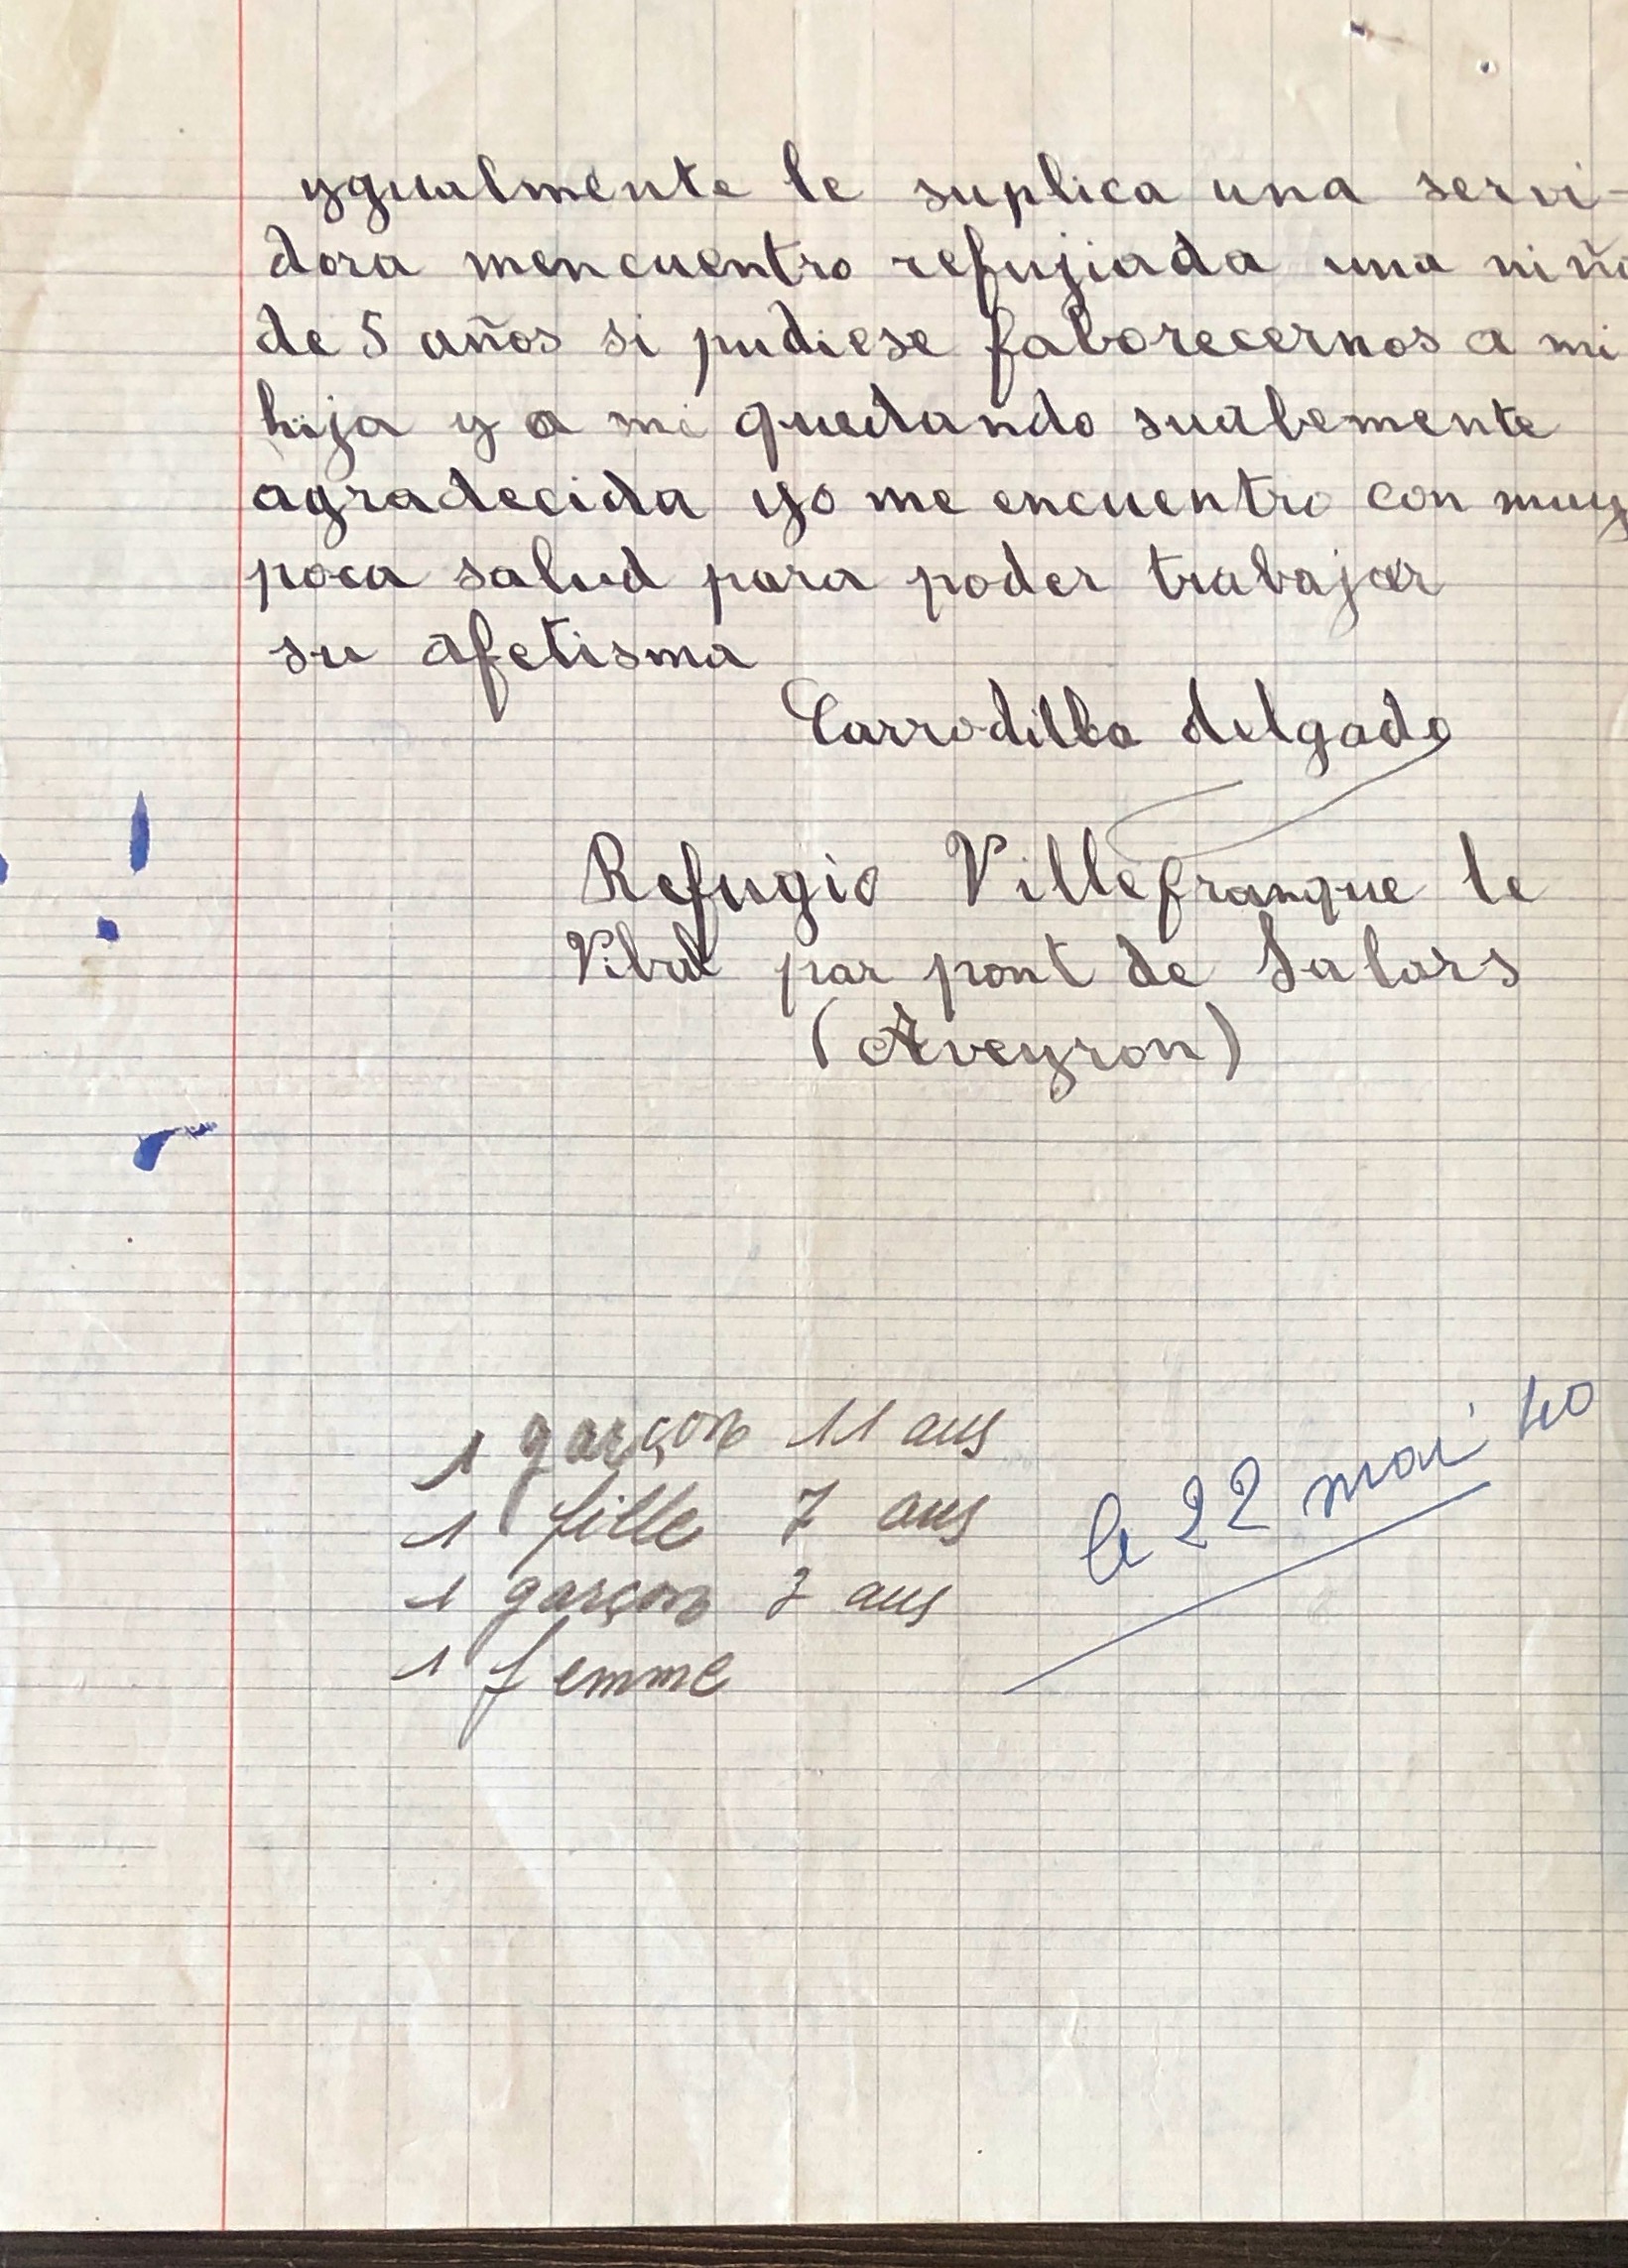 ygualmente le suplica una servi-
dora mencuentro refujiada una niña
de 5 años si pudiese faborecernos a mi
hija y a mi quedando suabemente
agradecida yo me encuentro con muy
poca salud para poder trabajar
su afetisma
Carrodilla delgado
Refugio Villefranque le
Vibal par pont de Salars
(Aveyron)
1 garçon 11 ans
1 fille 7 ans
le 22 mai 40
1 garçon 3 ans
1 femme